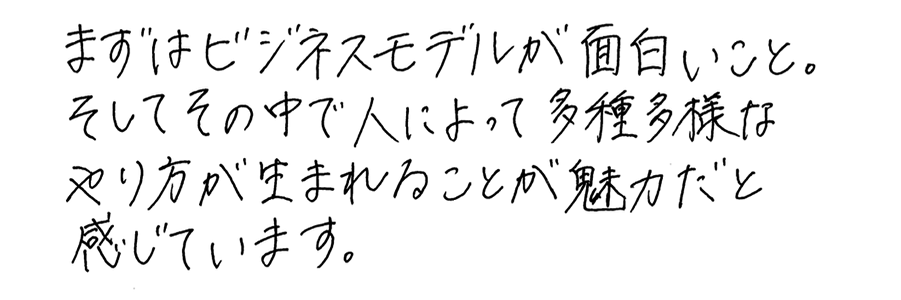 まずはビジネスモデルが面白いこと。
そしてその中で人によって多種多様な
やり方が生まれることが魅力だと
感じています。